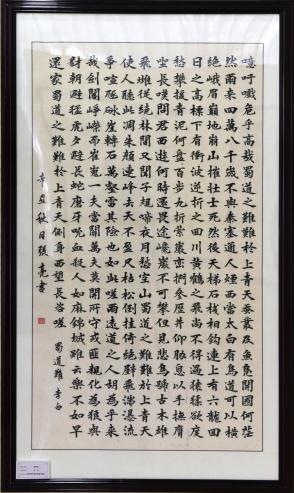 噫吁嚱危乎高哉蜀道之難難於上青天蠶叢及魚鳧開國何茫
然爾來四萬八千歲不與秦塞通人煙西當太白有鳥道可以橫
絕峨眉巔地崩山摧壯士死然後天梯石棧相鉤連上有六龍回
日之高標下有衝波逆折之回川黃鶴之飛尚不得過猿猱欲度
愁攀援青泥何盤百步九折縈巖巒捫參歷井仰脅息以手撫膺
坐長嘆問君西遊何時還畏途巉巖不可攀但見悲鳥號古木雄
飛雌從繞林間又聞子規啼夜月愁空山蜀道之難難於上青天
使人聽此凋朱顏連峰去天不盈尺枯松倒挂倚絕壁飛湍瀑流
爭喧豗砯崖轉石萬壑雷其險也如此嗟爾遠道之人胡為乎來
哉劍閣崢嶸而崔嵬一夫當關萬夫莫開所守或匪親化為狼與
豺朝避猛虎夕避長蛇磨牙吮血殺人如麻錦城雖云樂不如早
還家蜀道之難難於上青天側身西望長咨嗟 蜀道難 李白
辛丑秋月張亮書